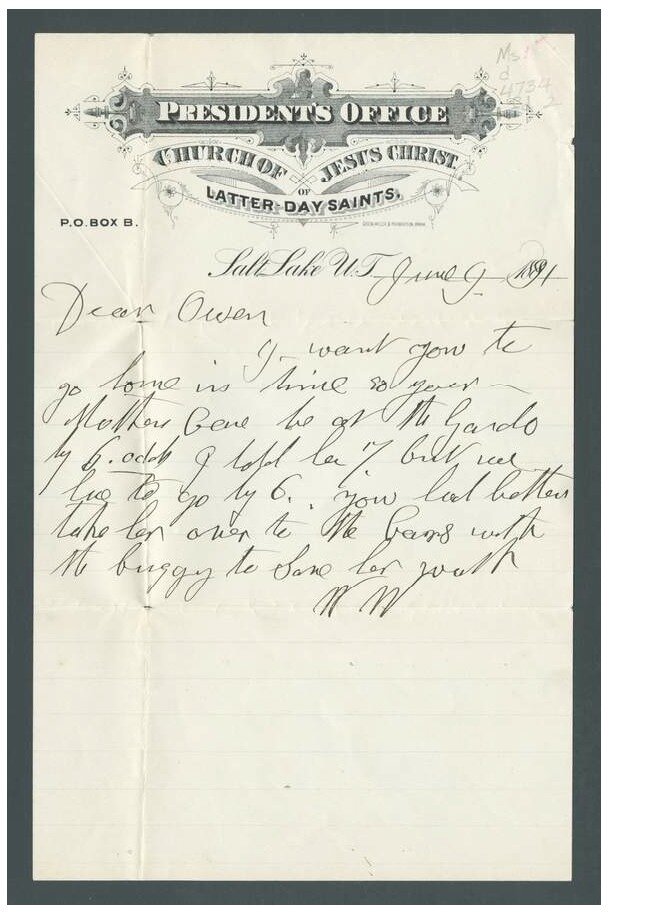 Ms
d
4734
2
PRESIDENT'S OFFICE
CHURCH OF JESUS CHRIST
OF
LATTER-DAY SAINTS.
P.O. BOX B.
Salt Lake U.T. June 9 1891
Dear Owen
I want you to
go home in time so your
Mother Cane be at the Gardo
by 6. I told her 7 but we
have to go by 6. you had better
take her over to the Cars with
the buggy to save her walk
W W